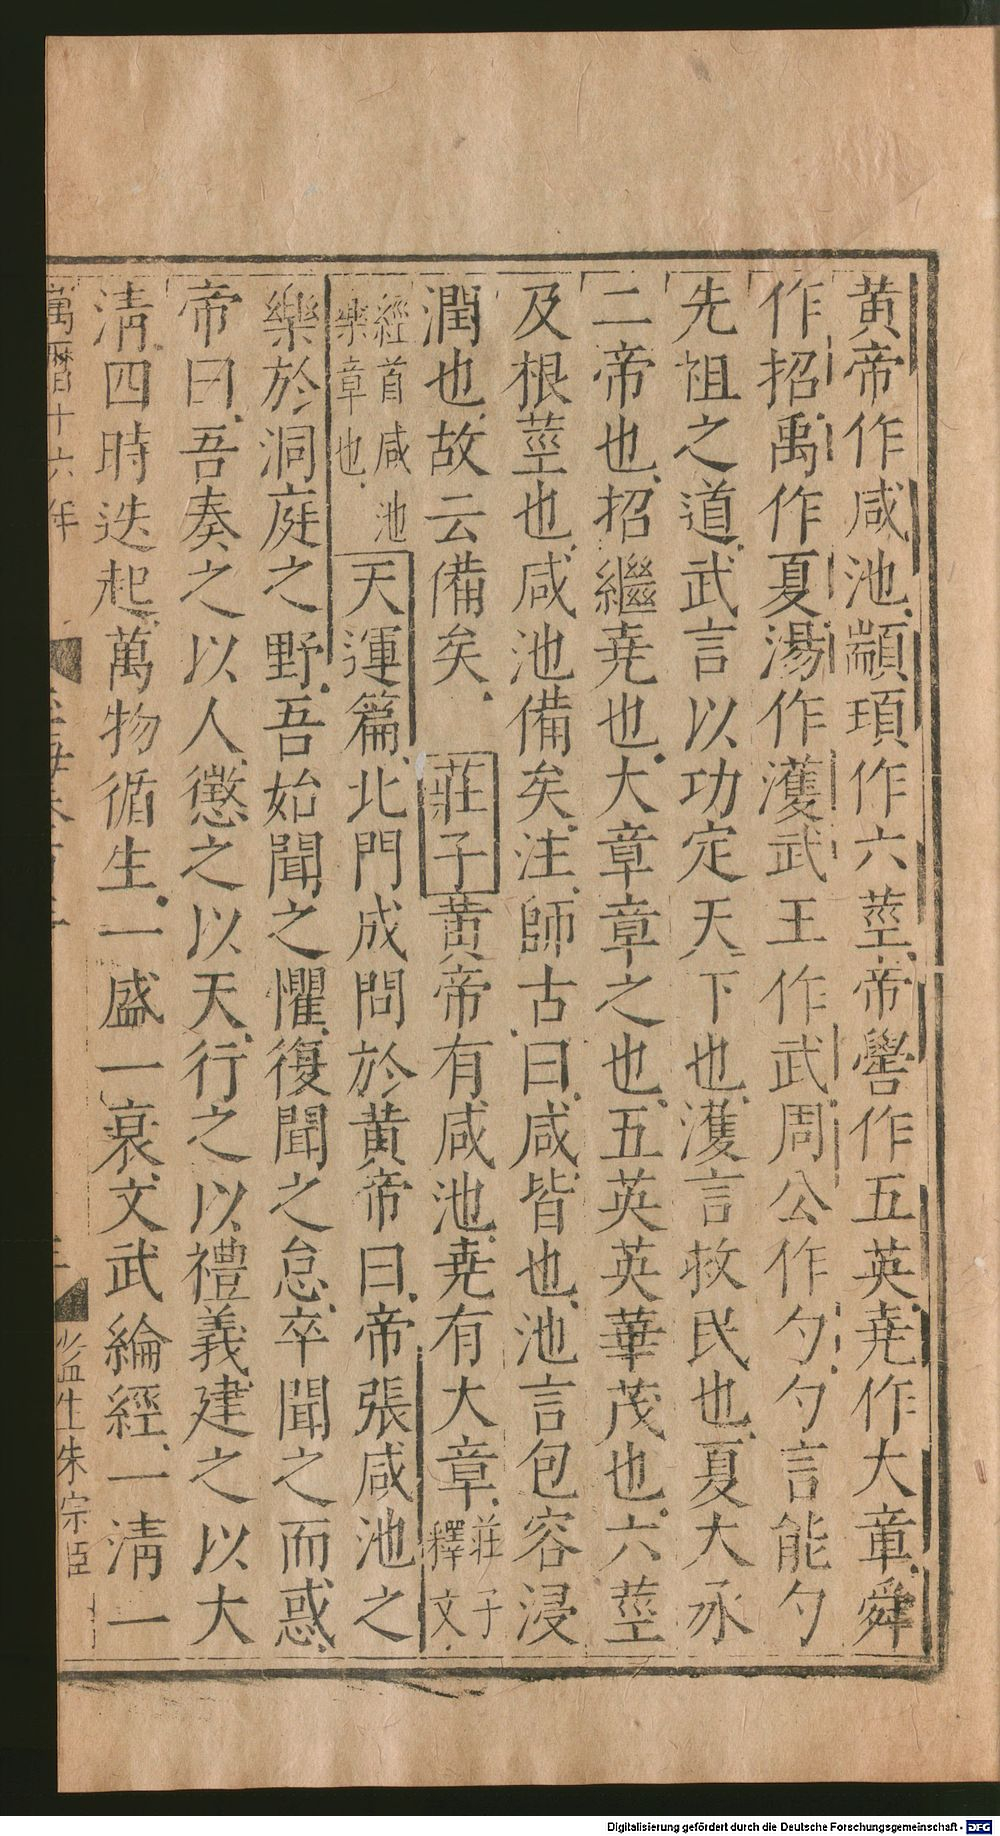 黄帝作咸池顓頊作六莖帝嚳作五英尭作大章舜
作招禹作夏湯作濩武王作武周公作勺勺言能勺
先祖之道武言以功定天下也濩言救民也夏大承
二帝也招繼尭也大章章之也五英英華茂也六莖
及根莖也咸池備矣注師古曰咸皆也池言包容浸
潤也故云備矣 莊子黄帝有咸池尭有大章莊子釋文
經首咸池樂章也天運篇北門成問於黄帝曰帝張咸池之
樂於洞庭之野吾始聞之懼復聞之怠卒聞之而惑
帝曰吾奏之以人懲之以天行之以禮義建之以大
清四時迭起萬物循生一盛一衰文武綸經一清一
萬曆十六年 監生朱宗臣
Digitalisierung gefördert durch die Deutsche Forschungsgemeinschaft - DFG